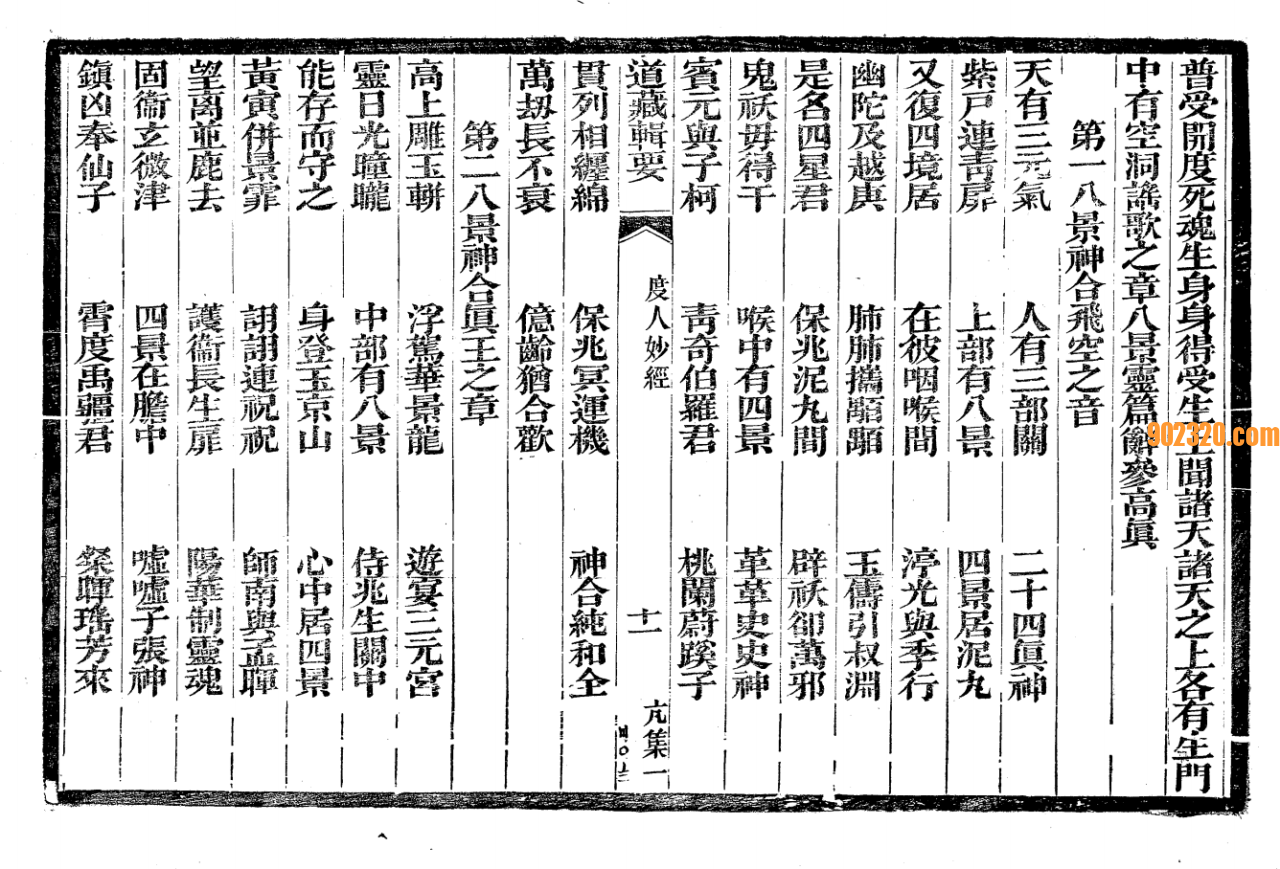 普受開度死魂生身身得受生上聞諸天諸天之上各有生門
中有空洞謠歌之章八景靈篇辭參高眞
第一八景神合飛空之音
天有三元氣　人有三部關　二十四眞神
紫戸連靑扉　上部有八景　四景居泥丸
又復四境居　在彼咽喉間　渟光與季行
幽陀及越庚　肺肺攜騮騮　玉儔引叔淵
是名四星君　保兆泥丸間　辟祅卻萬邪
鬼祅毋得干　喉中有四景　革革史史神
賓元與子柯　靑奇伯羅君　桃闌蔚蹊子
道藏輯要　度人妙經　十一　亢集一
貫列相纒綿　保兆冥運機　神合純和全
萬劫長不衰　億齡猶合歡
第二八景神合眞王之章
高上雕玉輧　浮駕華景龍　遊宴三元宮
靈日光曈曨　中部有八景　侍兆生關中
能存而守之　身登玉京山　心中居四景
黃寅併景霏　詡詡連祝祝　師南與孟暉
望离並鹿去　護衞長生扉　陽華制靈魂
固衞玄微津　四景在膽中　噓噓子張神
鎭凶奉仙子　霄度禹疆君　粲暉瑤芳來
902320.com